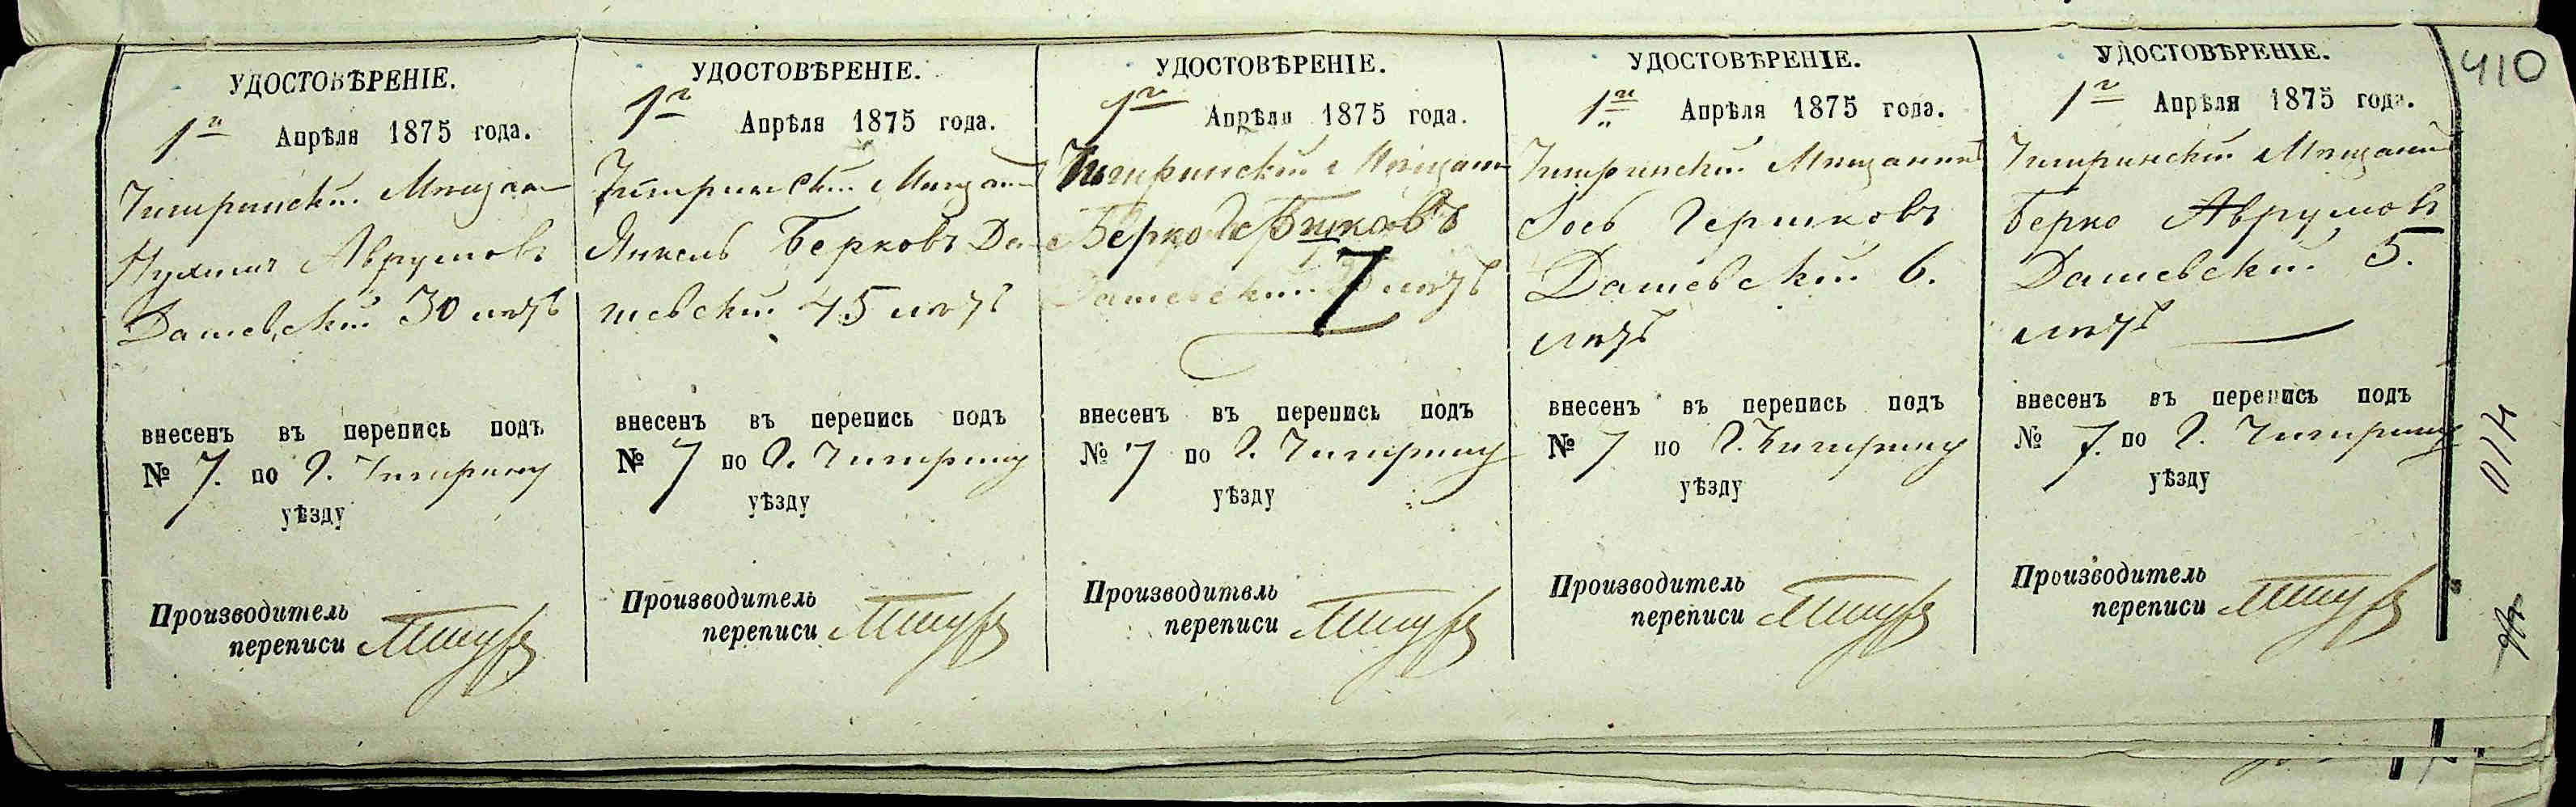 410
УДОСТОВѢРЕНІЕ.
1го Апрѣля 1875 года.
Чигиринскій Мѣщан
Нухимъ Аврумовъ
Дашевскій 30 лѣтъ
внесенъ въ перепись подъ
№ 7. по г. Чигирину
уѣзду
Производитель
переписи
УДОСТОВѢРЕНІЕ.
1го Апрѣля 1875 года.
Чигиринскій Мѣщан
Янкель Берковъ Да-
шевскій 45 лѣтъ
внесенъ въ перепись подъ
№ 7 по г. Чигирину
уѣзду
Производитель
переписи
УДОСТОВѢРЕНІЕ.
1го Апрѣля 1875 года.
Чигиринскій Мѣщан
Берко
Дашевскій 7 лѣтъ
внесенъ въ перепись подъ
№ 7 по г. Чигирину
уѣзду
Производитель
переписи
УДОСТОВѢРЕНІЕ.
1го Апрѣля 1875 года.
Чигиринскій Мѣщанинъ
Іось Гершковъ
Дашевскій 6.
лѣтъ
внесенъ въ перепись подъ
№ 7 по г. Чигирину
уѣзду
Производитель
переписи
УДОСТОВѢРЕНІЕ.
1го Апрѣля 1875 года.
Чигиринскій Мѣщанин
Берко Аврумовъ
Дашевскій 5.
лѣтъ
внесенъ въ перепись подъ
№ 7. по г. Чигирину
уѣзду
Производитель
переписи
410